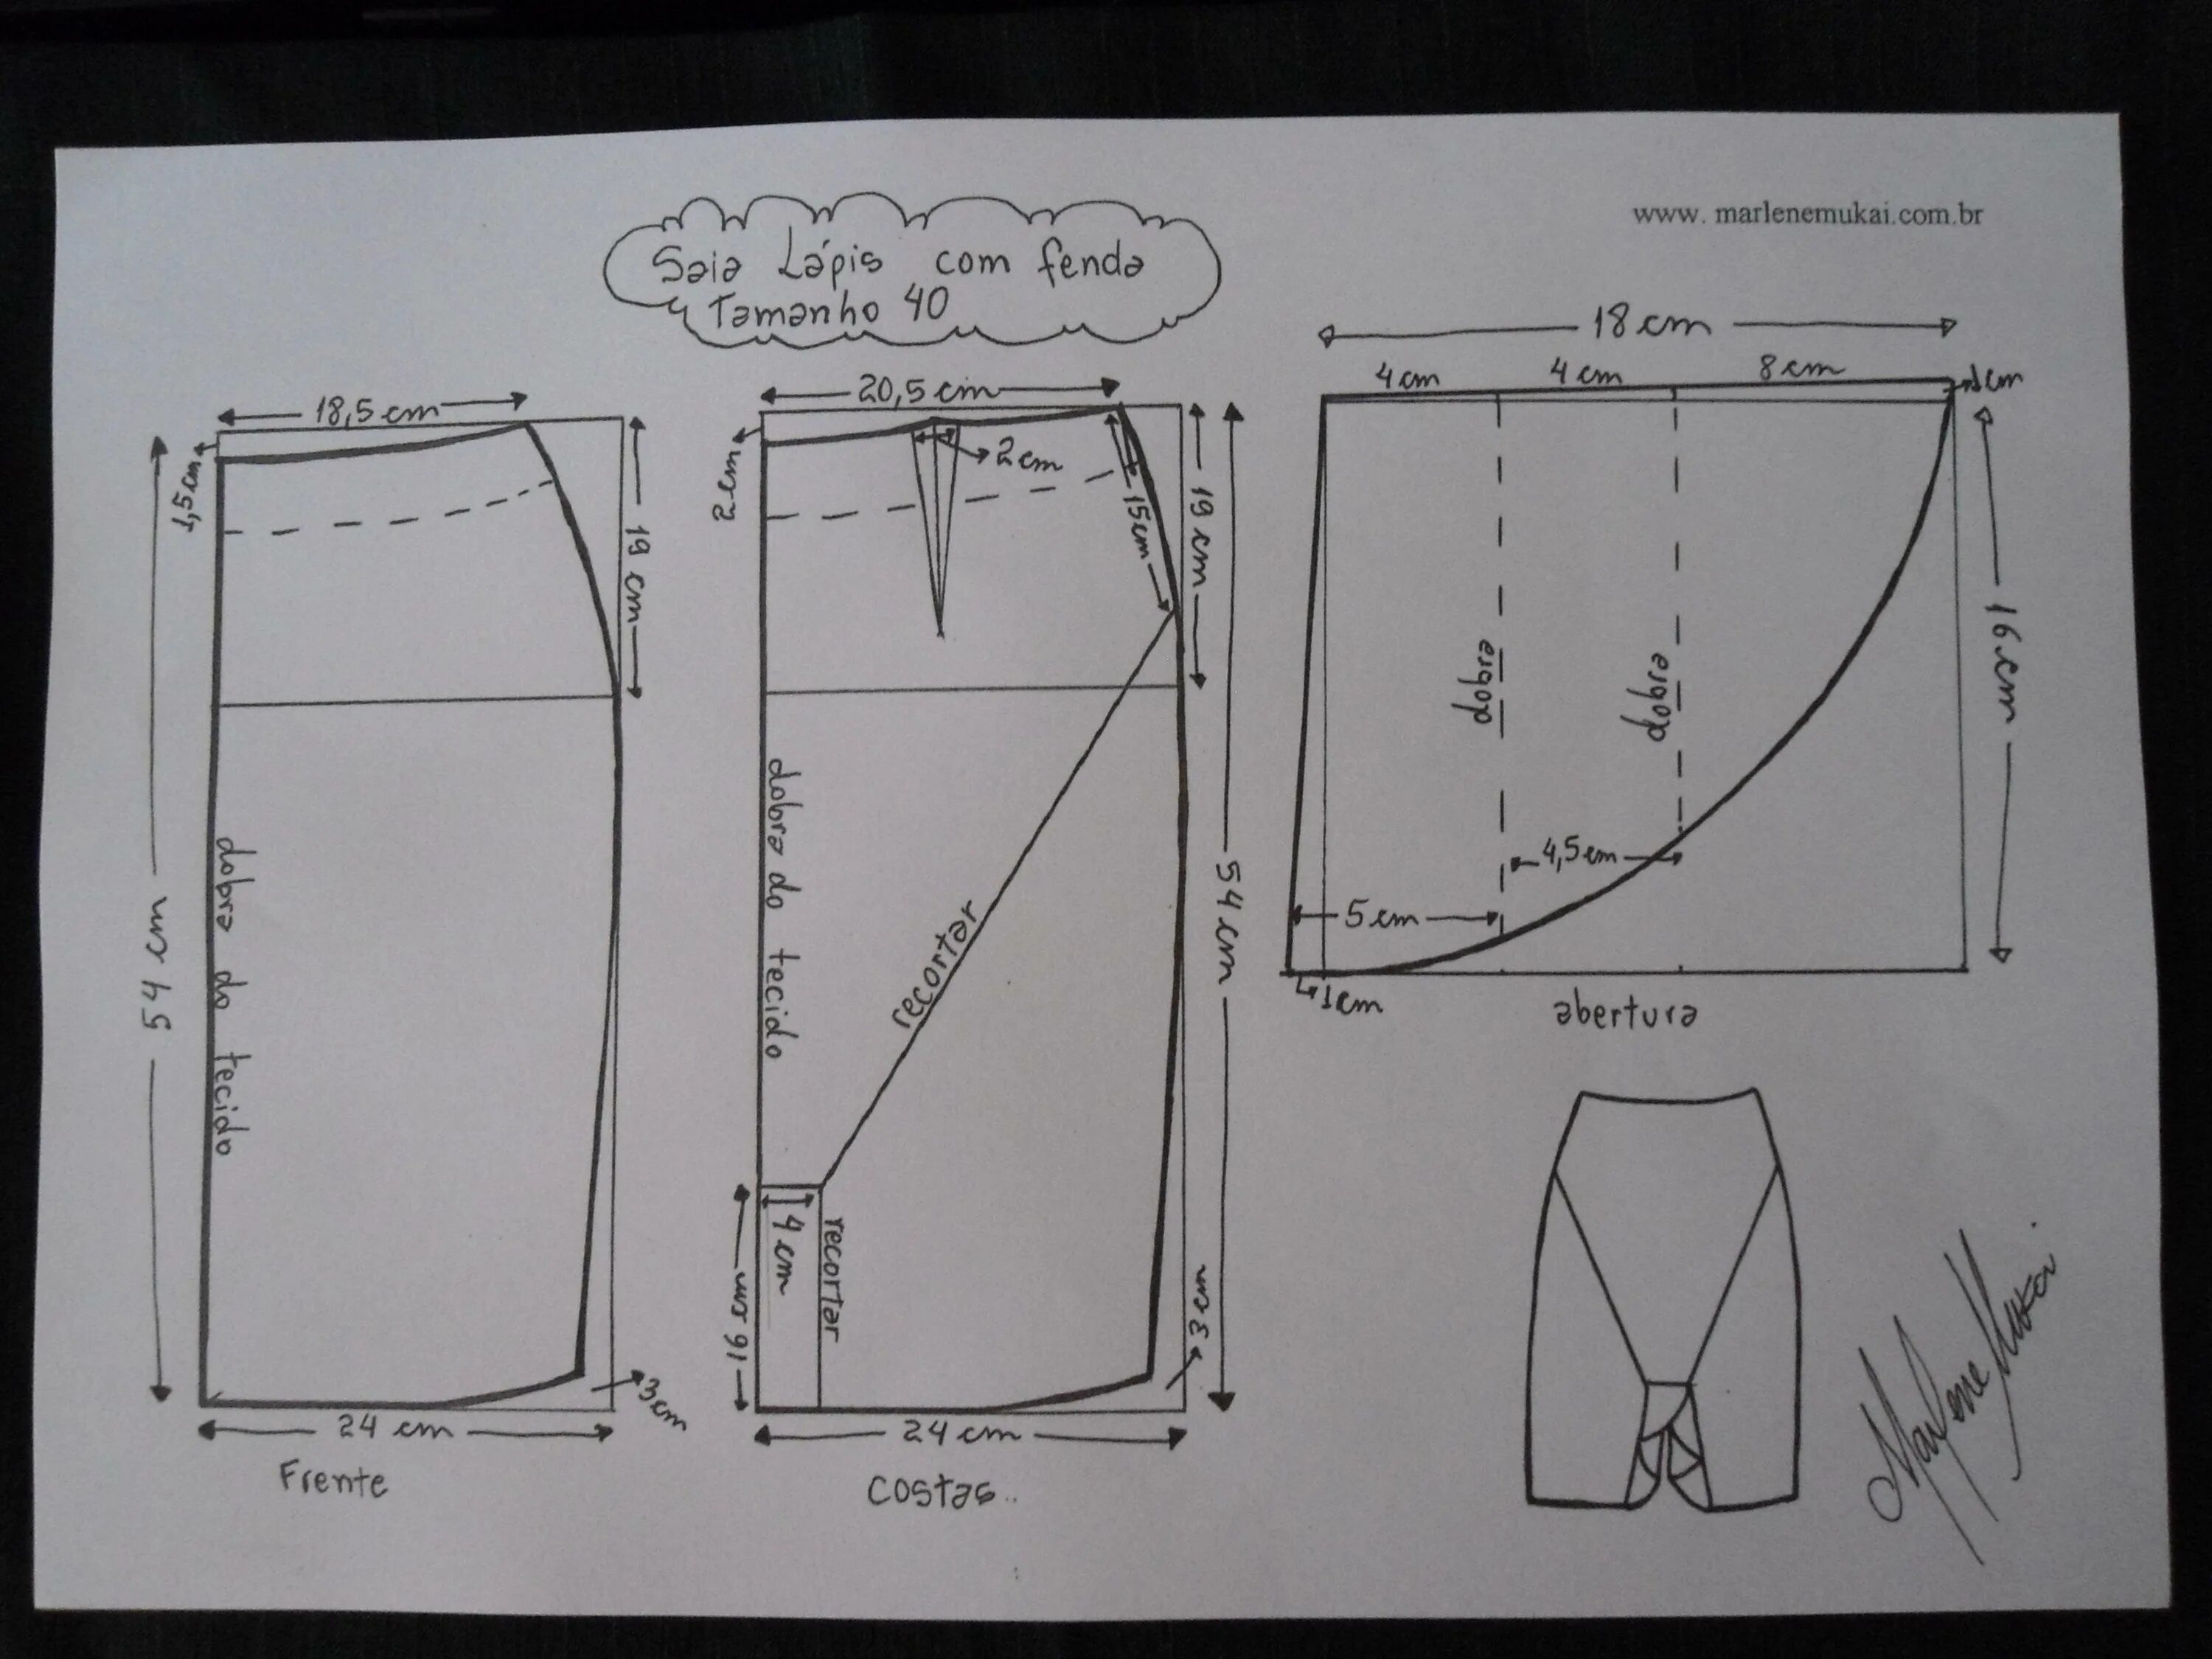 www. marlenemukai.com.br
Saia Lápis com fenda
Tamanho 40
18,5 cm
1,5 cm
19 cm
54 cm
dobra do tecido
3cm
24 cm
Frente
20,5 cm
2 cm
2 cm
15cm
19 cm
54 cm
dobra do tecido
recortar
4 cm
recortar
16 cm
3 cm
24 cm
costas..
18 cm
4 cm
4 cm
8 cm
1cm
16 cm
dobra
dobra
4,5 cm
5 cm
1cm
abertura
Marlene Mukai